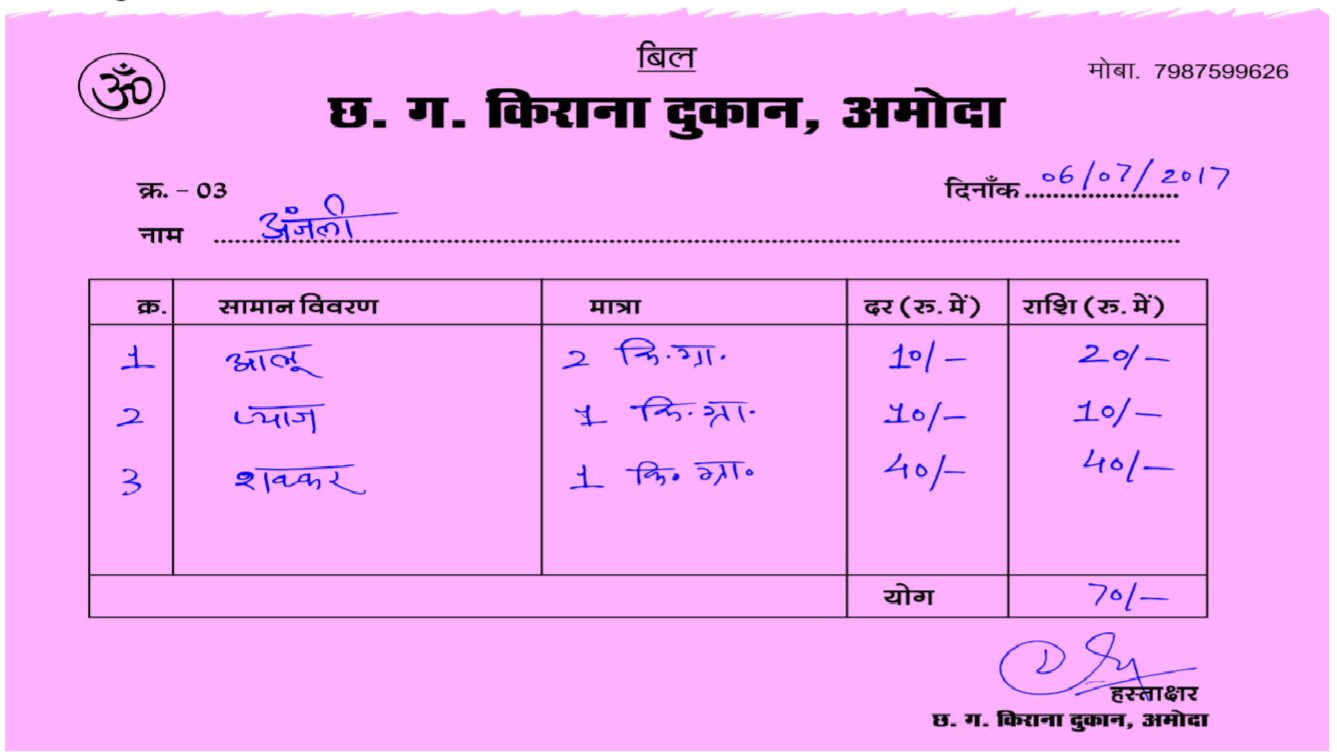 बिल
ॐ
मोबा. 7987599626
छ. ग. किराना दुकान, अमोदा
क्र. – 03
दिनाँक 06/07/2017
नाम अंजली
क्र. सामान विवरण मात्रा दर (रु. में) राशि (रु. में)
1 आलू 2 कि.ग्रा. 10/- 20/-
2 प्याज 1 कि.ग्रा. 10/- 10/-
3 शक्कर 1 कि. ग्रा. 40/- 40/-
योग 70/-
हस्ताक्षर
छ. ग. किराना दुकान, अमोदा